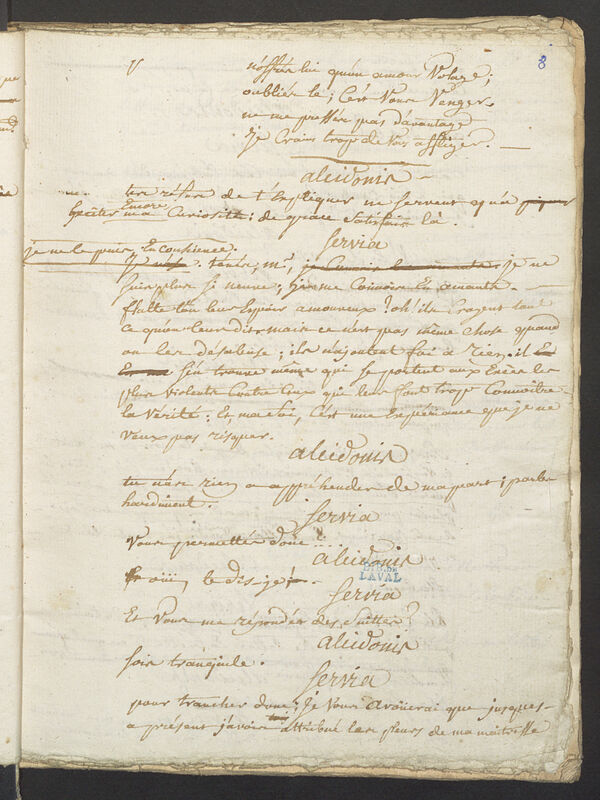 8
n'offre lui qu'un amour Volage;
oubliés le; C'est Vous Venger.
ne me pressés pas davantage
Je Crains trop de Vous affliger.
alcidonis
ton refus de t'Expliquer ne servent qu'a piquer
Exciter Encore ma Curiosité: de grace satisfais la.
Servia
je ne le puis, En Conscience.
tenés, mr, je ne
suis plus si neuve; je me Connois En amants.
flatte t'on leur Espoir amoureux? oh! ils Croyent tout
Ce qu'on leur dit. mais Ce n'est pas même Chose quand
on les désabuse; ils n'ajoutent foi a rien. il
s'en trouve même qui se portent aux Excès les
plus violents Contre Ceux qui leur font trop Connoitre
la Vérité: Et, ma foi, C'est une Expériance que je ne
Veux pas risquer.
alcidonis
tu n'as rien a appréhender de ma part; parle
hardiment.
Servia
Vous permettes donc!..
alcidonis
oüi, te dis-je!..
BIB. DE
LAVAL
Servia
Et Vous me répondés des suittes?
alcidonis
sois tranquile.
Servia
pour trancher donc, Je Vous avoüerai que jusques-
a présent j'avois attribué les pleurs de ma maitresse